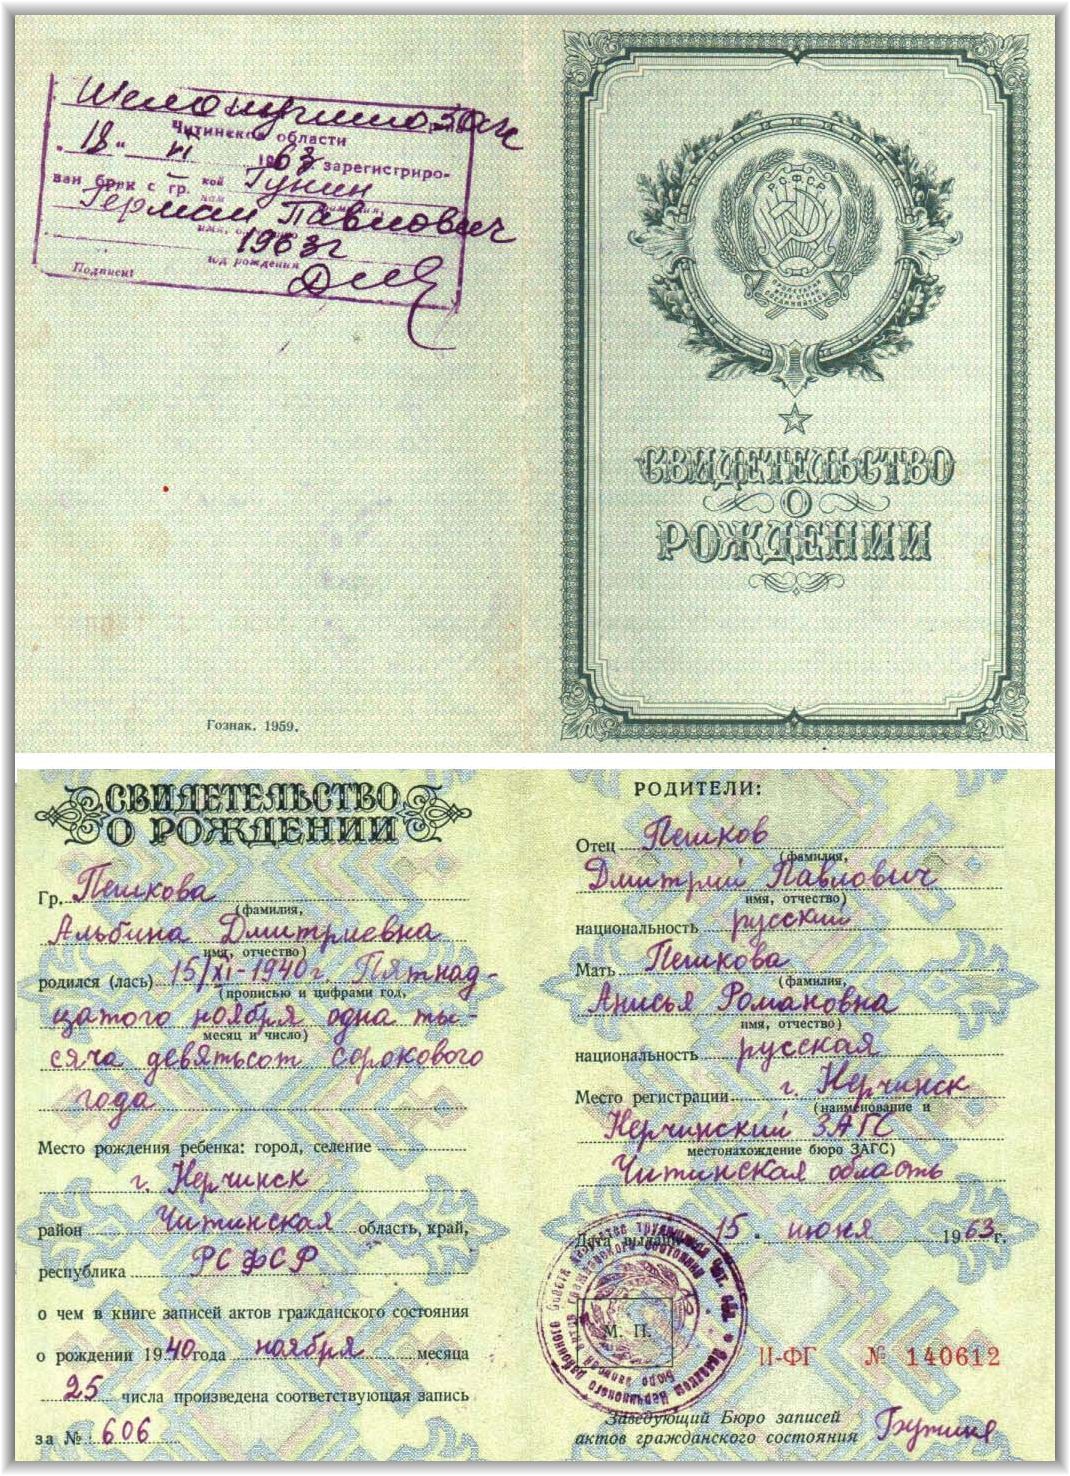 Читинской области
"18" VI 1963 зарегистриро-
ван брак с гр. кой Гунин
ном фамилия,
Герман Павлович
имя,
1963г
год рождения
Подписи:
Гознак. 1959.
РСФСР
СВИДЕТЕЛЬСТВО
О
РОЖДЕНИИ
СВИДЕТЕЛЬСТВО
О РОЖДЕНИИ
Гр. Пешкова
(фамилия,
Альбина Дмитриевна
имя, отчество)
родился (лась) 15/XI-1940г. Пятнад-
(прописью и цифрами год,
цатого ноября одна ты-
месяц и число)
сяча девятьсот сорокового
года
Место рождения ребенка: город, селение
г. Нерчинск
район Читинская область, край,
республика РСФСР
о чем в книге записей актов гражданского состояния
о рождении 1940 года ноября месяца
25 числа произведена соответствующая запись
за № 606
РОДИТЕЛИ:
Отец Пешков
(фамилия,
Дмитрий Павлович
имя, отчество)
национальность русский
Мать Пешкова
(фамилия,
Анисья Романовна
имя, отчество)
национальность русская
Место регистрации г. Нерчинск
(наименование и
Нерчинский ЗАГС
местонахождение бюро ЗАГС)
Читинская область
Дата выдачи "15" июня 1963г.
М. П.
II-ФГ № 140612
Заведующий Бюро записей
актов гражданского состояния